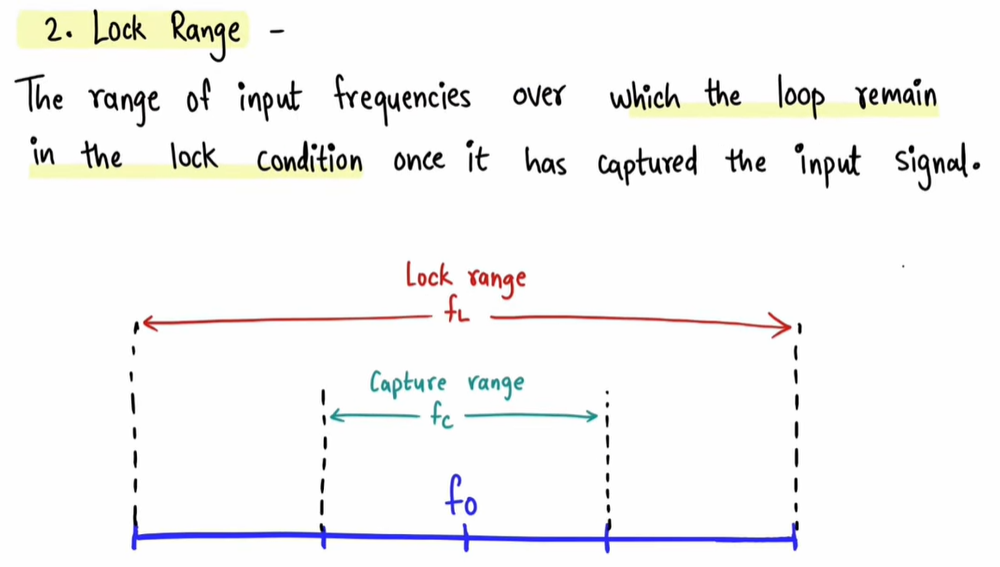 2. Lock Range -
The range of input frequencies over which the loop remain
in the lock condition once it has captured the input signal.
Lock range
fL
Capture range
fc
fo